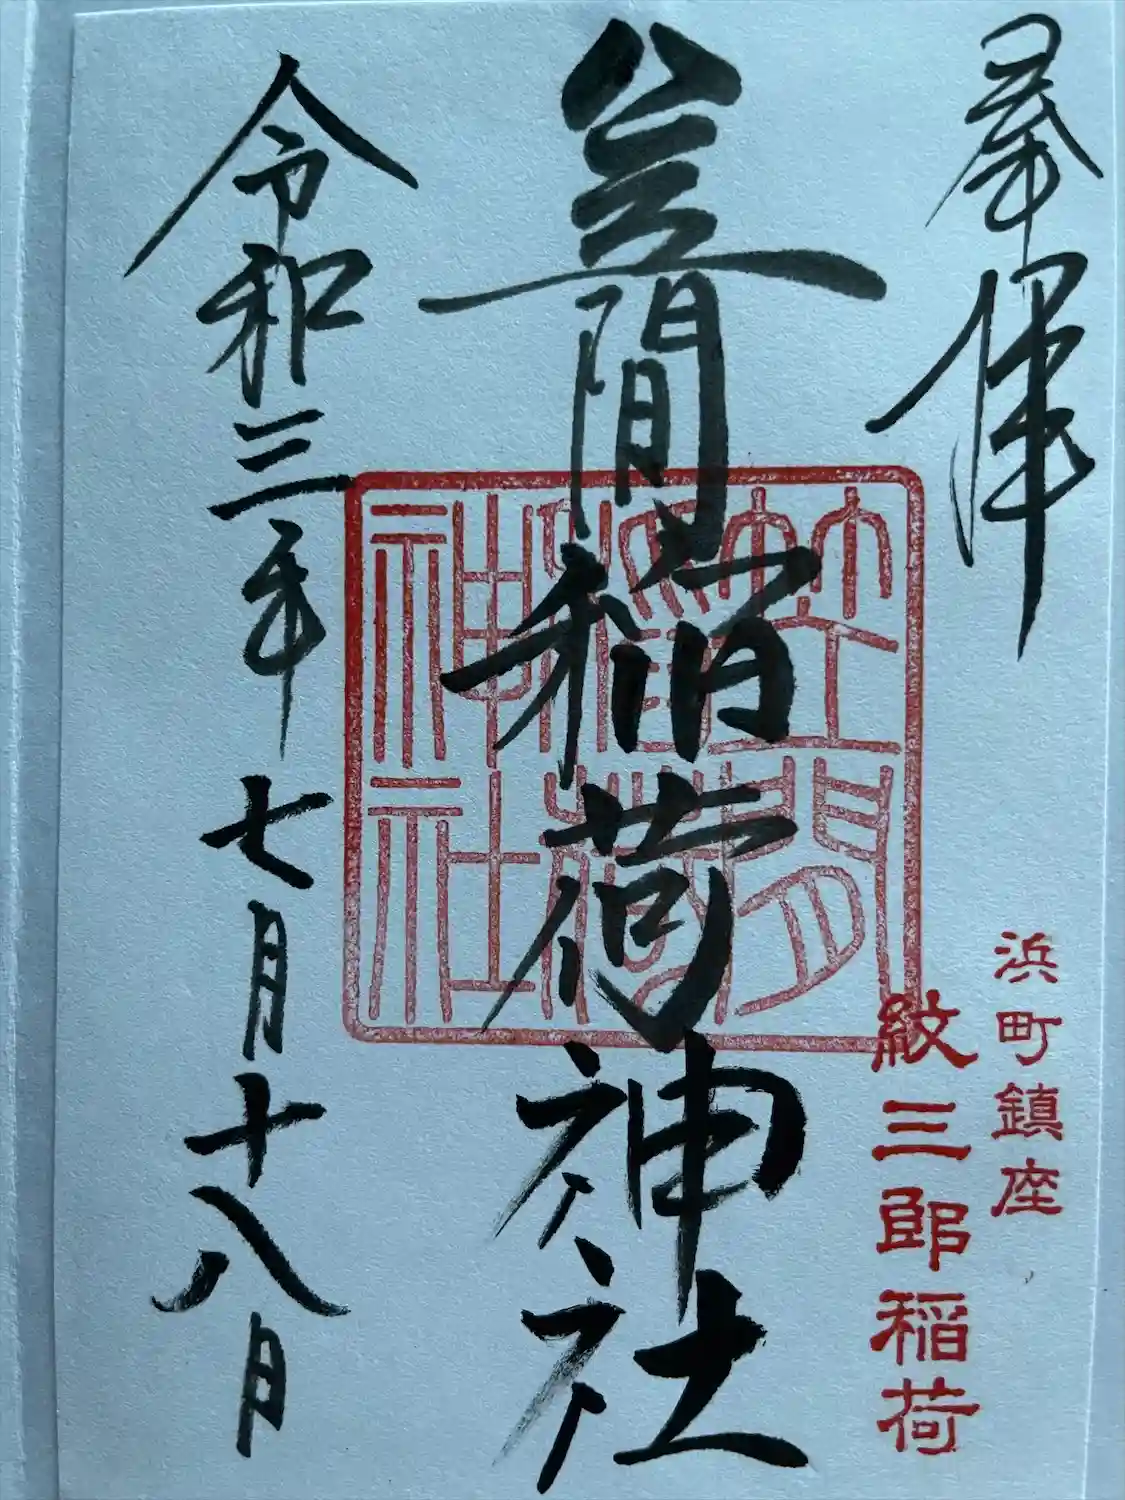 奉拝
浜町鎮座
紋三郎稲荷
笠間稲荷神社
笠間
稲荷
神社
令和三年七月十八日